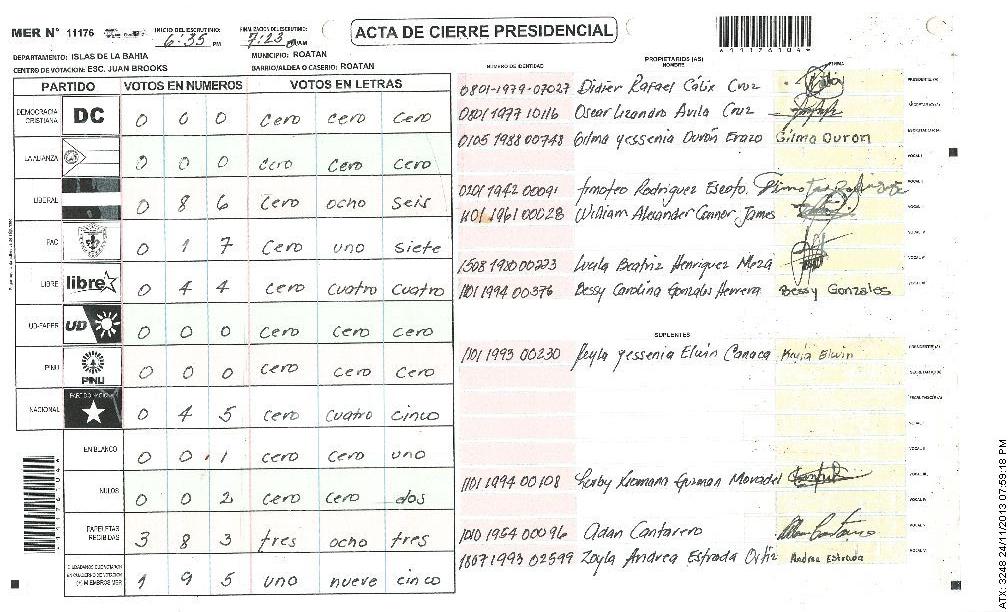 MER N° 11176 INICIO DEL ESCRUTINIO: 6:35 PM FINALIZACION DEL ESCRUTINIO: 7:23 AM
ACTA DE CIERRE PRESIDENCIAL
DEPARTAMENTO: ISLAS DE LA BAHIA MUNICIPIO: ROATAN
CENTRO DE VOTACION: ESC. JUAN BROOKS BARRIO/ALDEA O CASERIO: ROATAN
PARTIDO VOTOS EN NUMEROS VOTOS EN LETRAS
DEMOCRACIA CRISTIANA DC 0 0 0 cero cero cero
LA ALIANZA 0 0 0 cero cero cero
LIBERAL 0 8 6 cero ocho seis
PAC 0 1 7 cero uno siete
LIBRE libre 0 4 4 cero cuatro cuatro
UD-FAPER UD 0 0 0 cero cero cero
PINU PINU 0 0 0 cero cero cero
NACIONAL 0 4 5 cero cuatro cinco
EN BLANCO 0 0 1 cero cero uno
NULOS 0 0 2 cero cero dos
PAPELETAS RECIBIDAS 3 8 3 tres ocho tres
1 9 5 uno nueve cinco
NUMERO DE IDENTIDAD PROPIETARIOS (AS) NOMBRE FIRMA
0801-1979-07027 Didier Rafael Cálix Cruz
0801 1977 10116 Oscar Lizandro Avila Cruz
0105 1988 00748 Gilma Yessenia Durón Erazo Gilma Duron
0201 1942 00091 Timoteo Rodriguez Escoto
1101 1961 00028 William Alexander Connor James
1508 1980 00223 Lucila Beatriz Henriquez Meza
1101 1994 00376 Bessy Carolina Gonzales Herrera Bessy Gonzales
SUPLENTES
1101 1993 00230 Keyla Yessenia Elwin Canaca Keyla Elwin
1101 1994 00108
1010 1954 00096 Adan Cantarero
1807 1993 02599 Zoyla Andrea Estrada Ortiz Andrea Estrada
ATX: 3248 24/11/2013 07:59:18 PM